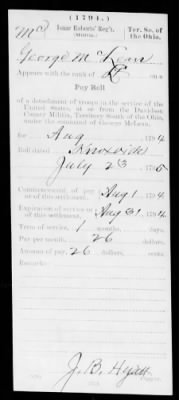 (1794.)
Mc Isaac Roberts' Reg't. Ter. So. of
(Militia.) the Ohio.
George McLean
Appears with the rank of Lt on a
Pay Roll
of a detachment of troops in the service of the
United States, at or from the Davidson
County Militia, Territory South of the Ohio,
under the command of George McLean,
for Aug 1794
Roll dated Knoxville
July 23 1795
Commencement of pay or of this settlement, Aug 1 , 1794
Expiration of service or of this settlement, Aug 31 , 1794
Term of service, 1 months,
Pay per month, 26 dollars
Amount of pay, 26 dollars, cents.
Remarks:
J. B. Hyatt
Copyist.